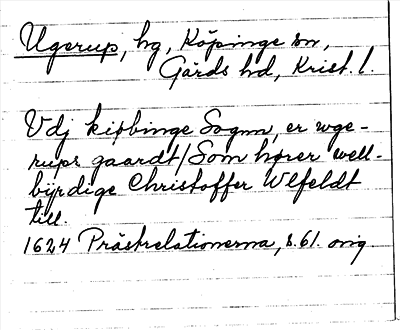 Ugerup, hg, Köpinge sn,
Gärds hd, Krist. l.
Vdj kiøbinge Sognn, er wge-
rups gaardt/Som hører well-
bÿrdige Christoffer Vlfeldt
till.
1624 Prästrelationerna, s.61. orig.